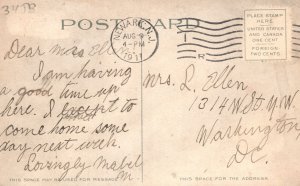 POST CARD
NEWARK, N.J.
AUG 9
4-PM
1911
PLACE STAMP
HERE
UNITED STATES
AND CANADA
ONE CENT
FOREIGN
TWO CENTS
Dear Mrs Ellen
I am having
a good time up
here. I expect to
come home some
day next week.
Lovingly Mabel
M.
Mrs. L. Ellen
1314 W St N.W
Washington
D.C.
THIS SPACE MAY BE USED FOR MESSAGE
THIS SPACE FOR THE ADDRESS.